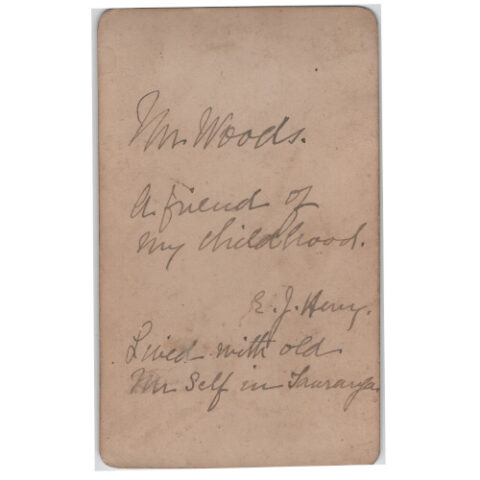 Mr Woods.
A friend of
my childhood.
E. J. Henry.
Lived with old
Mr Self in Tauranga